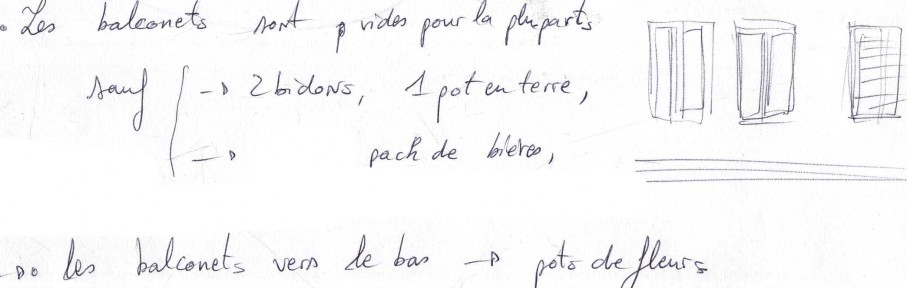 • Les balconets sont vides pour la pluparts
sauf { → 2 bidons, 1 pot en terre,
→ pack de bières,
→ • les balconets vers le bas → pots de fleurs